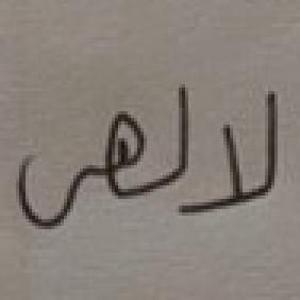 لالهی